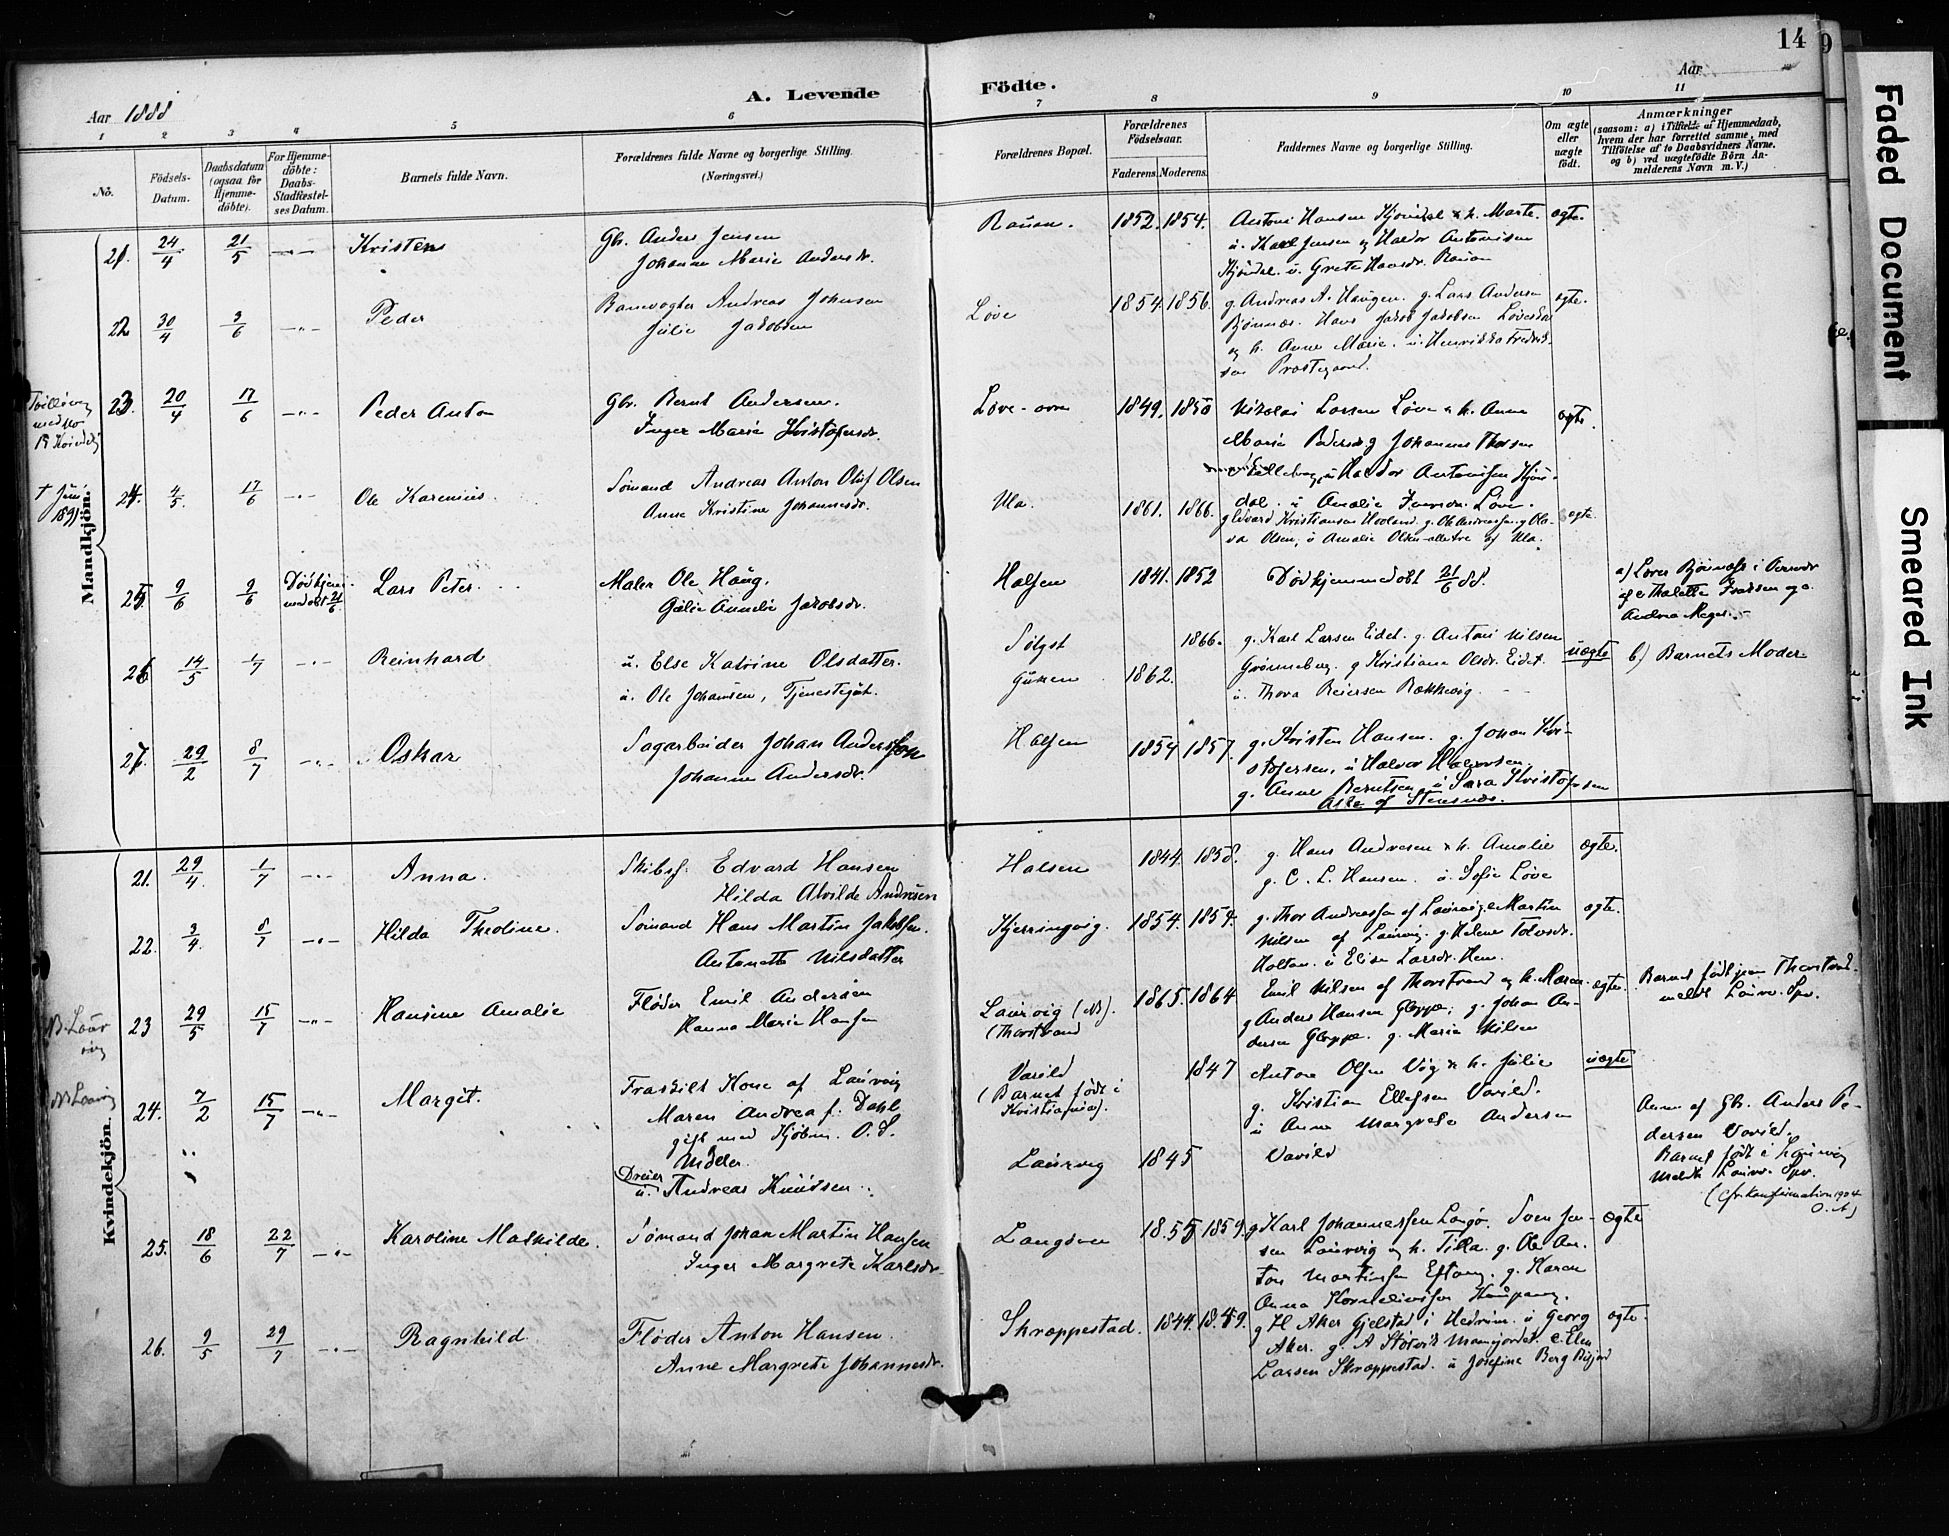 14
9
Faded Document
Smeared Ink
Aar 1888
A. Levende
Födte.
Aar
1 2 3 4 5 6 7 8 9 10 11
No.
Födsels-
Datum.
Daabsdatum
(ogsaa for
Hjemme-
döbte).
For Hjemme-
döbte:
Daabs-
Stadfæstel-
ses Datum.
Barnets fulde Navn.
Forældrenes fulde Navne og borgerlige Stilling.
(Næringsvei.)
Forældrenes Bopæl.
Forældrenes
Födselsaar.
Faderens. Moderens.
Faddernes Navne og borgerlige Stilling.
Om ægte
eller
uægte
födt.
Anmærkninger
(saasom: a) i Tilfælde af Hjemmedaab,
hvem der har forrettet samme, med
Tilföielse af to Daabsvidners Navne,
og b) ved uægtefödte Börn An-
melderens Navn m. V.)
Mandkjön.
21. 24/4 21/5 Kristen
Gbr. Anders Jensen
Johanne Marie Andersdr.
Rauan. 1852. 1854.
Antoni Hansen Kjöndal & h. Marte.
u. Karl Jensen og Haldor Antonisen
Kjöndal. u. Grete Hansdr. Rauan
ægte
22 30/4 3/6 Peder
Banevogter Andreas Johnsen
Julie Jakobsen
Löve 1854. 1856.
g. Andreas A. Haugen. g. Lars Andersen
Bjönnæs. Hans Jakob Jakobsen
og h. Anne Marie. u. Henrikka Fredrik-
sen Prestegaard.
ægte.
Tvilling
med No
19 Kvindekj
23. 20/4 17/6 Peder Anton
Gbr. Bernt Andersen.
Inger Marie Kristofersdr.
Löve-övre 1849. 1850
Nikolai Larsen Löve & h. Anne
Marie Pedersdr. g Johannes Thorsen
u Haldor Antonisen Kjön-
dal. u Amalie Jensdr. Löve.
ægte.
† Juni
1891
24. 4/5. 17/6 Ole Karenius.
Sömand Andreas Anton Oluf Olsen
Anne Kristine Johannesdr.
Ula. 1861. 1866.
g Edvard Kristiansen Havland. g. Ole Andreassen. g Ola-
va Olsen, u Amalie Olsen alle tre af Ula.
ægte.
25. 9/6 9/6 Död hjem-
medöbt 21/6
Lars Peter.
Maler Ole Haug.
Gulie Annelie Jakobsdr.
Halsen 1841. 1852
Död hjemmedöbt 21/6 88.
a) Lover Bjönnæss i
af e Thalette Isaksen og e.
Andrea Meyer.
26 14/5 1/7 Reinhard
u. Else Katrine Olsdatter.
u. Ole Johansen, Tjenestegut.
Sölyst 1866.
Gunen 1862.
g. Karl Larsen Eidet. g. Antoni Nilsen
Grönneberg. g Kristiane Olsdr. Eidet.
u. Thora Reiersen Rækkevig.
uægte
b) Barnets Moder
27. 29/2 8/7 Oskar
Sagarbeider Johan Anderssen
Johanne Andersdr.
Halsen 1854 1857.
g. Kristen Hansen. g. Johan Kri-
stofersen, u Halvor Halvorsen,
g. Anne Berntsen, u Sara Kristofersen
Alle af Stensnæs.
Kvindekjön.
21. 29/4. 1/7 Anna.
Skibsf. Edvard Hansen
Hilda Alvilde Andresen
Halsen 1844. 1858.
g. Hans Andresen & h. Amalie
g. C. L. Hansen. u. Sofie Löve
ægte.
22. 3/4. 8/7 Hilda Theoline.
Sömand Hans Martin Jakobsen.
Antonette Nilsdatter
Kjerringvig. 1854. 1854.
g. Thor Andreassen af Laurvig. Martin
Nilsen af Laurvig. g. Helene Tolvsdr.
Holtan. u Elise Larsdr. Hem.
ægte.
N. Laur
vig
23 29/5 15/7 Hansine Amalie
Flöder Emil Andersen
Hanna Marie Hansen
Laurvig (N).
(Thorstrand
1865. 1864
Emil Nilsen af Thorstrand og h. Maren
g Anders Hansen Gloppe, g. Johan An-
dersen Gloppe. g. Maria Nilsen
ægte.
Barnet födt paa Thorstrand.
meldt Laurv. Spr.
N. Laurvig
24. 7/2 15/7 Margit.
Fraskilt Kone af Laurvig
Maren Andrea f. Dahl
gift med Kjöbm. O. S.
Möller.
Dreier
u. Andreas Knudsen.
Varild
(Barnet födt i
Kristiania).
1847
Laurvig 1845
Anton Olsen Vög & h. Julie
g. Kristian Ellefsen Varild.
u Anna Margrete Andersen
Varild
uægte
Anm. af Gbr. Anders Pe-
dersen Varild.
Barnet födt i Laurvig
meldt Laurv. Spr.
(cfr. Konfirmation 1904
O. A)
25. 18/6 22/7 Karoline Mathilde.
Sömand Johan Martin Hansen
Inger Margrete Karlsdr.
Langöen 1855 1859.
g Karl Johannessen Langö. Sven Jen-
sen Laurvig og h. Tilla. g. Ole An-
ton Martinsen Eftang. g. Karen
Anna Korneliussen Kaupang.
ægte
26. 9/5 29/7 Ragnhild
Flöder Anton Hansen.
Anne Margrete Johannesdr.
Skræppestad. 1844. 1849.
g H. Aker Gjelstad i Hedrum. u Georg
Aker. g. A Störvik Mamejordet. e. Elen
Larsen Skræppestad. u Josefine Berg
ægte.